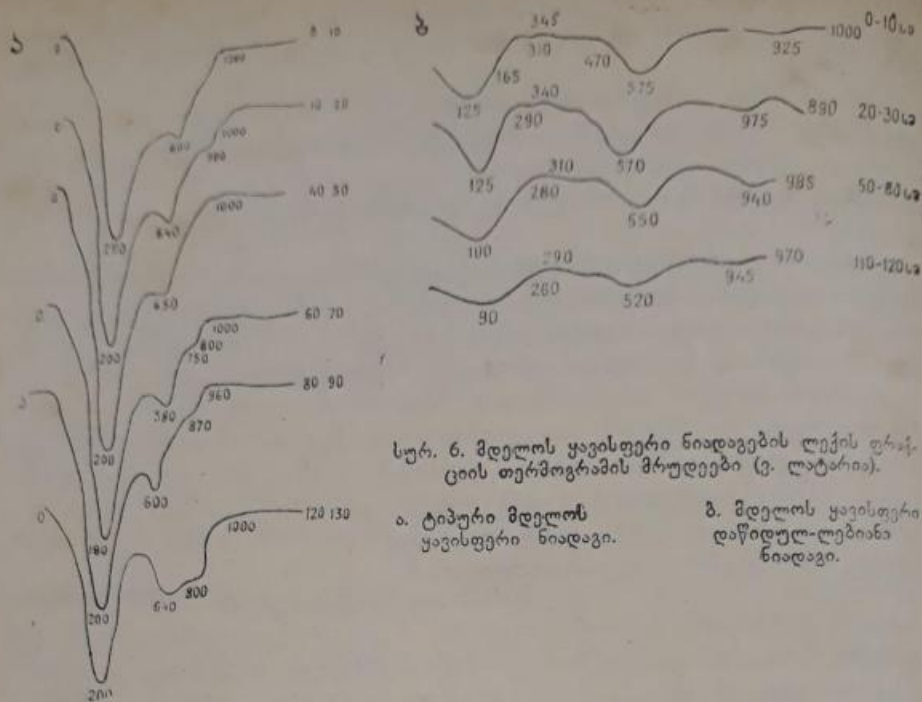 ა
0
1000
600
200
0
10 20
1000
980
640
200
0
40 50
1000
650
200
0
60 70
1000
800
750
580
180
0
80 90
960
870
600
200
0
120 130
1000
800
640
200
ბ
345
310
165
125
470
575
925
1000
0-10სა
340
290
125
570
975
890
20-30სა
310
280
100
550
940
985
50-80სა
290
260
90
520
945
970
110-120სა
სურ. 6. მდელოს ყავისფერი ნიადაგების ლექის
ციის თერმოგრამის მრუდეები (ვ. ლატარია).
ა. ტიპური მდელოს
ყავისფერი ნიადაგი.
ბ. მდელოს ყავისფერი
დაწიდულ-ლებიანა
ნიადაგი.